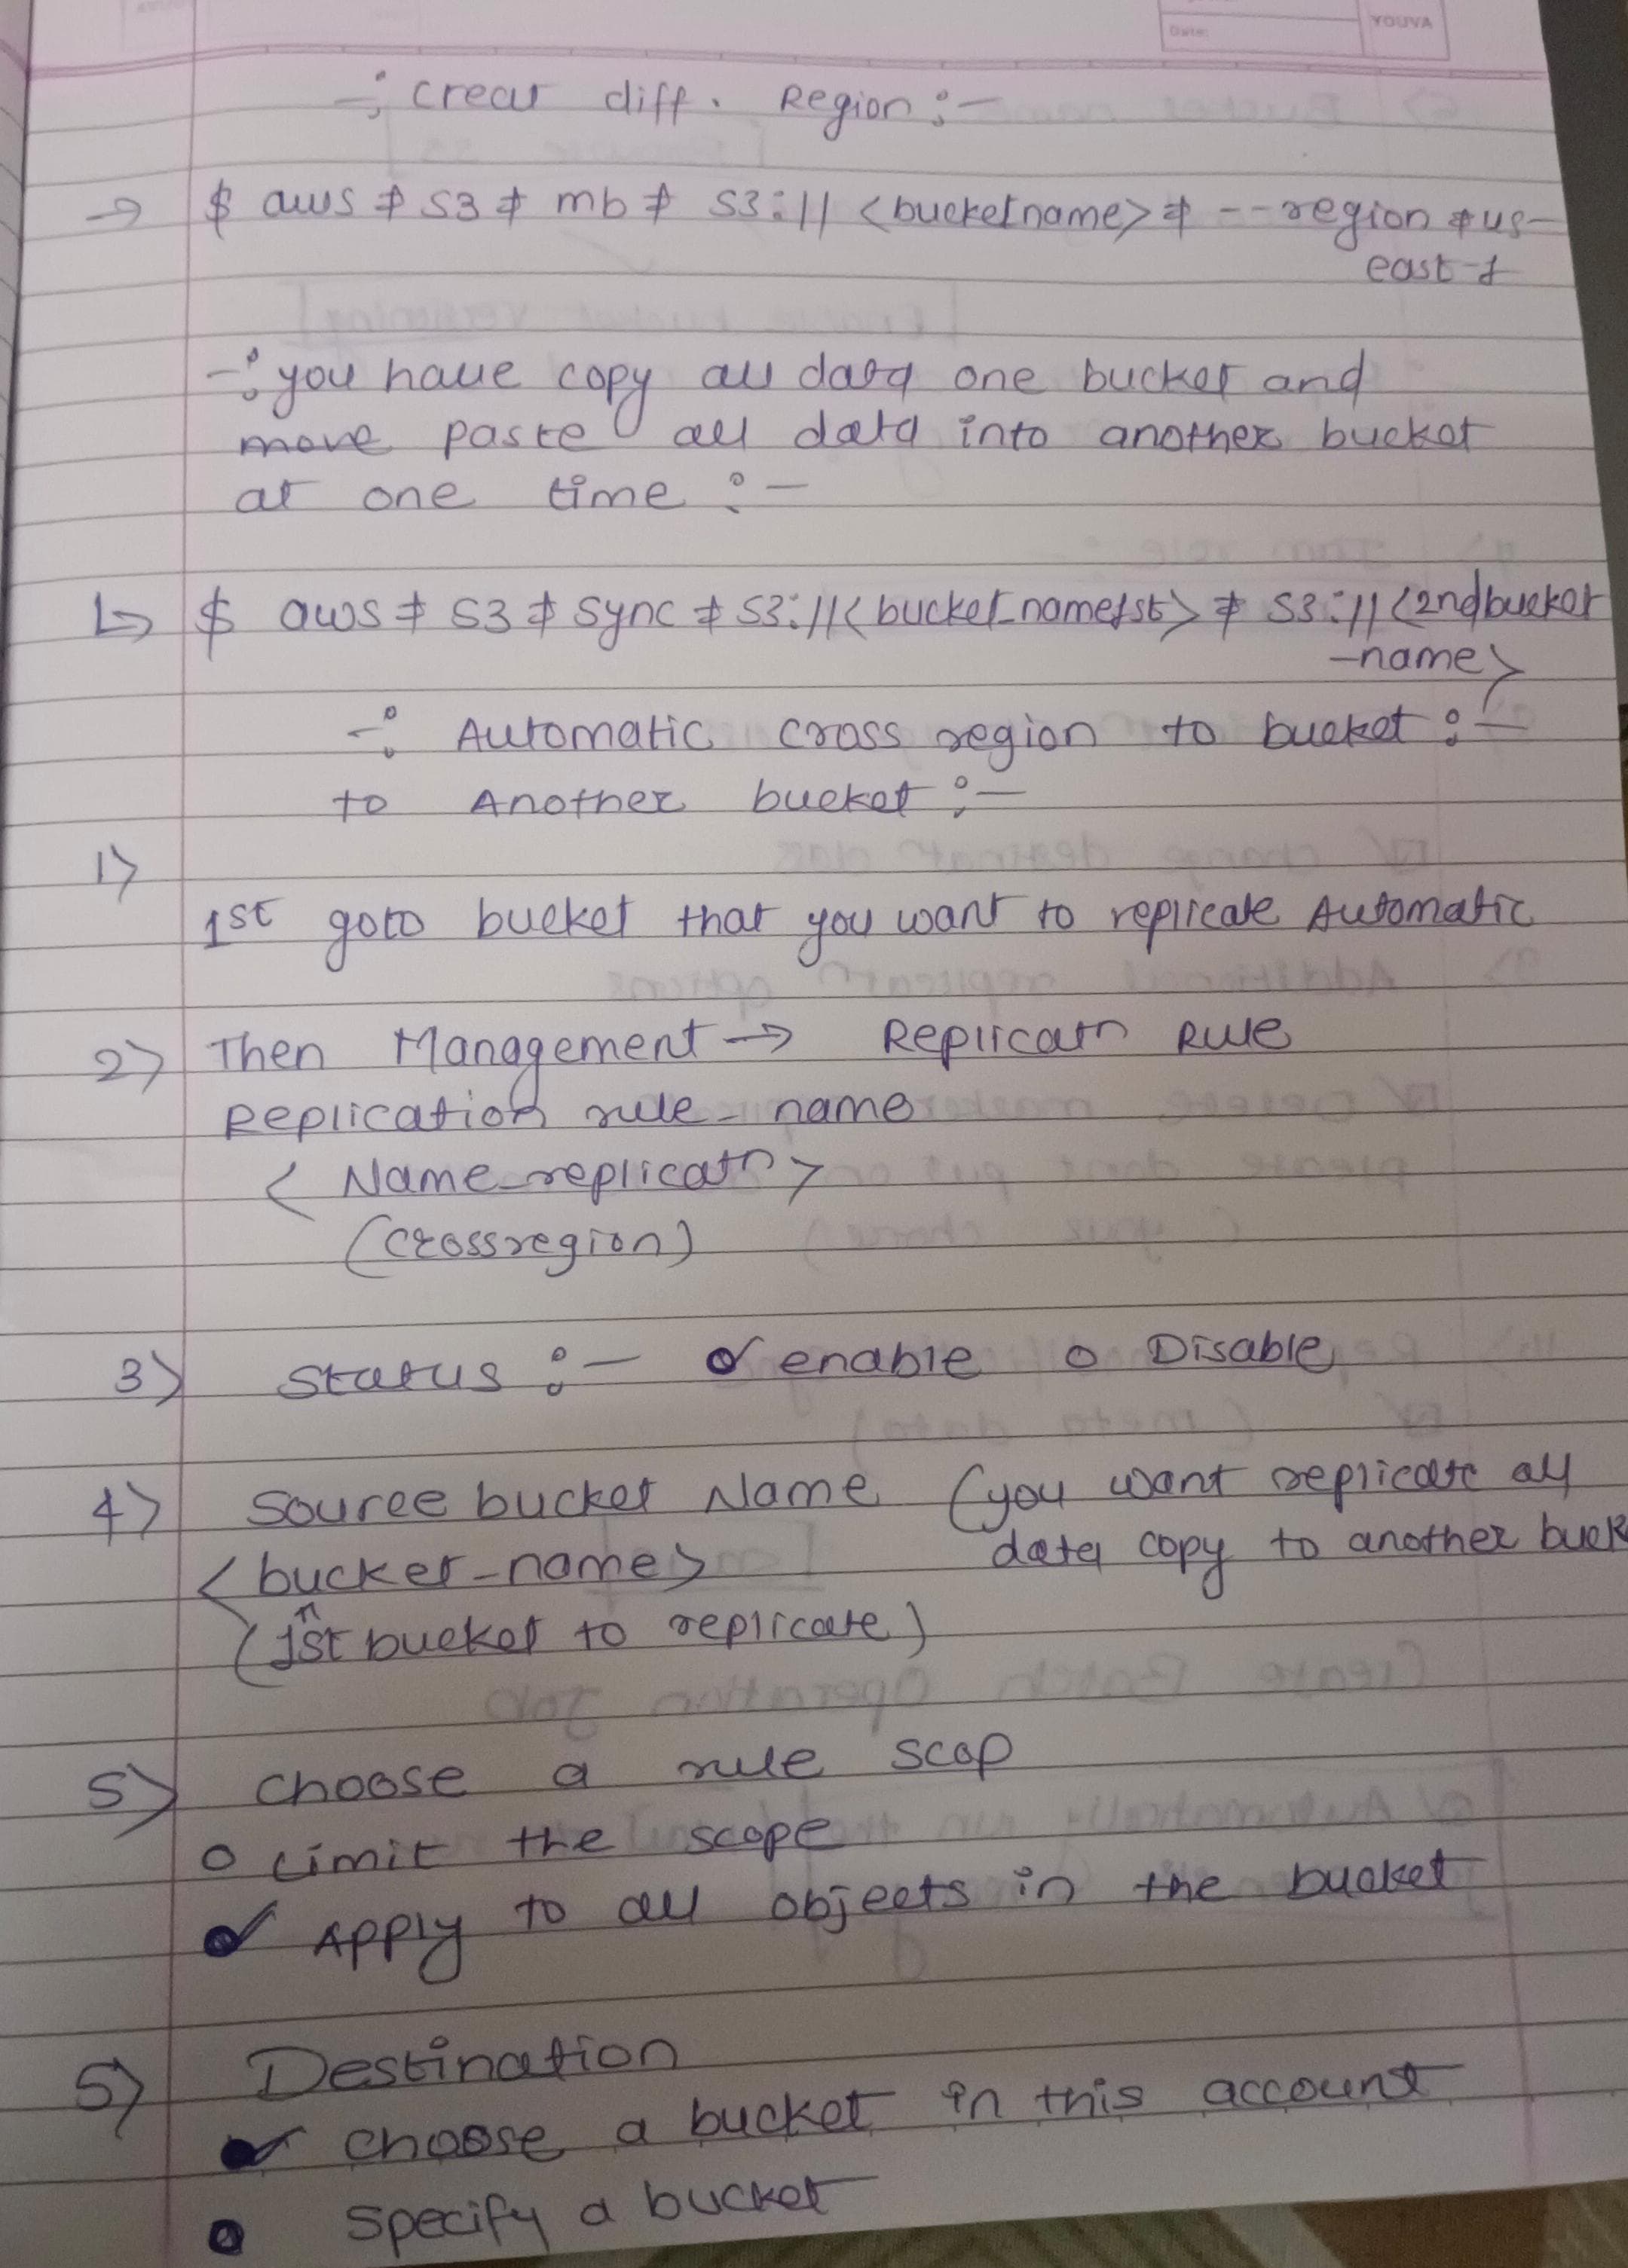 Date:
YOUVA
-: Creat diff. Region :-
→ $ aws ≠ s3 ≠ mb ≠ s3:// <bucketname> ≠ --region ≠ us-
east-1
-: you have copy all data one bucket and
move paste all data into another bucket
at one time :-
↳ $ aws ≠ s3 ≠ sync ≠ s3://<bucket_name1st> ≠ s3://<2ndbucket
-name>
-: Automatic cross region to bucket :-
to Another bucket :-
1>
1st goto bucket that you want to replicate Automatic
2> Then Management → Replicatn Rule
Replication rule - name
< Name-replicatn >
(crossregion)
3> Status :- enable o Disable
4> Souree bucket Name (you want replicate all
data copy to another buck
<bucket-name>
(1st bucket to replicate)
5> choose a rule scop
o Limit the scope
Apply to all objects in the bucket
5> Destination
choose a bucket in this account
Specify a bucket